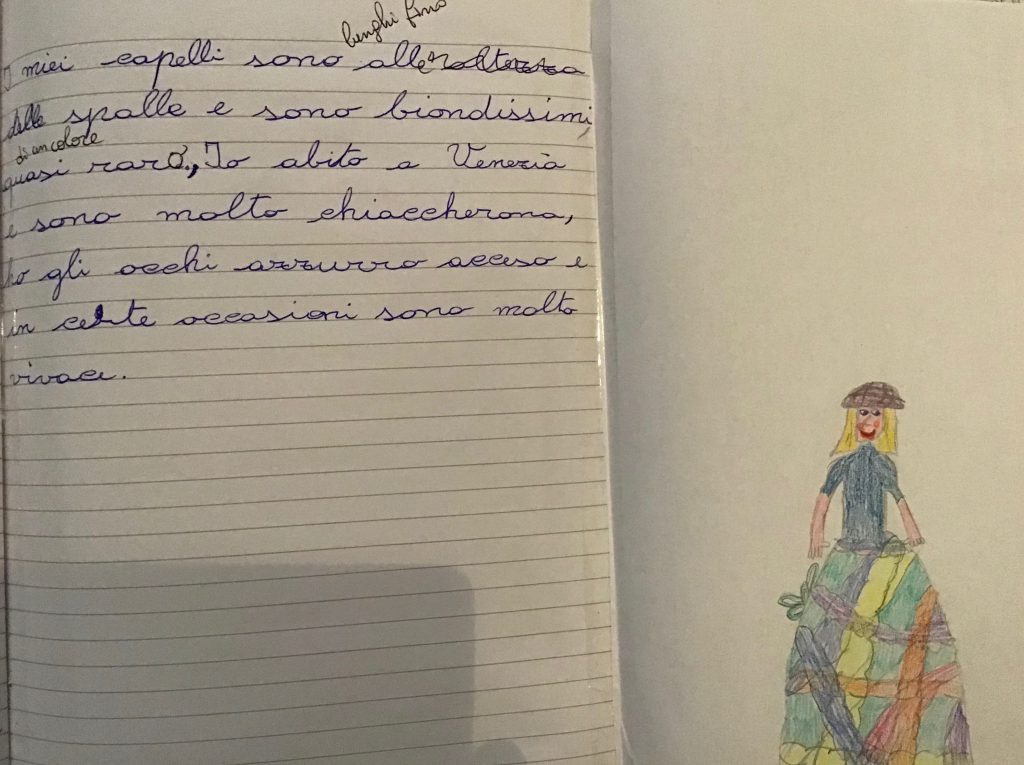 lunghi fino
I miei capelli sono alle altezza
delle spalle e sono biondissimi,
di un colore
quasi raro., Io abito a Venezia
e sono molto chiaccherona,
ho gli occhi azzurro acceso e
in certe occasioni sono molto
vivace.